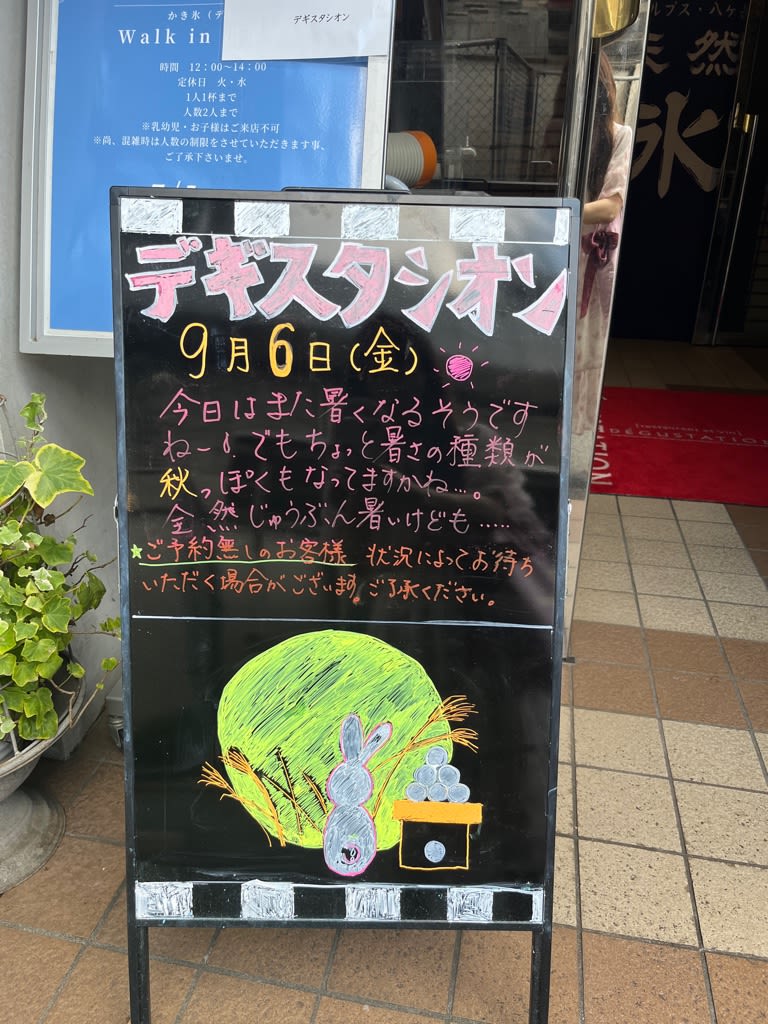 かき氷（デ
デギスタシオン
Walk in
時間　12：00〜14：00
定休日　火・水
1人1杯まで
人数2人まで
※乳幼児・お子様はご来店不可
※尚、混雑時は人数の制限をさせていただきます事、
ご了承下さいませ。
ルプス・八ケ
天然
氷
デギスタシオン
9月6日(金)
今日はまた暑くなるそうです
ねー! でもちょっと暑さの種類が
秋っぽくもなってますかね…。
全然じゅうぶん暑いけども……
☆ご予約無しのお客様 状況によってお待ち
いただく場合がございます。ご了承ください。
DÉGUSTATION
TION